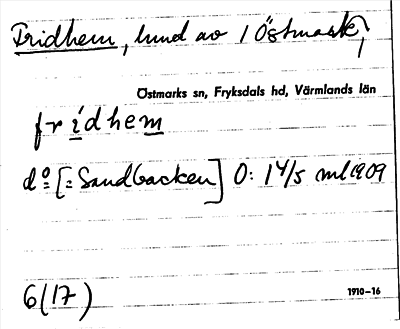 Fridhem, lund av 1 Östmark,
Östmarks sn, Fryksdals hd, Värmlands län
fr ídhem
do [: Sandbacken] O: 14/5 ml 1909
6(17)
1910-16